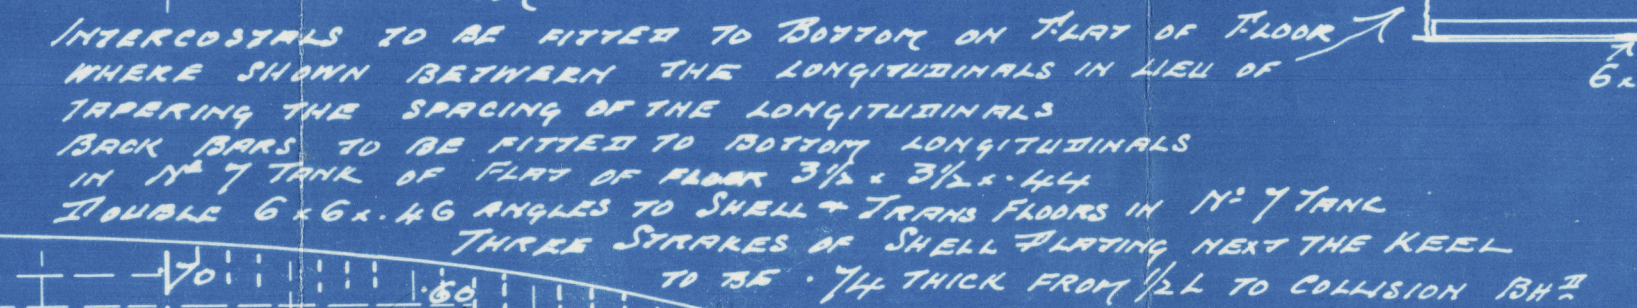 INTERCOSTALS TO BE FITTED TO BOTTOM ON FLAT OF FLOOR
WHERE SHOWN BETWEEN THE LONGITUDINALS IN LIEU OF
TAPERING THE SPACING OF THE LONGITUDINALS
BACK BARS TO BE FITTED TO BOTTOM LONGITUDINALS
IN Nº 7 TANK OF FLAT OF FLOOR 3½ x 3½ x .44
DOUBLE 6 x 6 x .46 ANGLES TO SHELL + TRANS FLOORS IN Nº 7 TANK
THREE STRAKES OF SHELL PLATING NEXT THE KEEL
TO BE .74 THICK FROM ½ L TO COLLISION BHD
6x
.70
.60